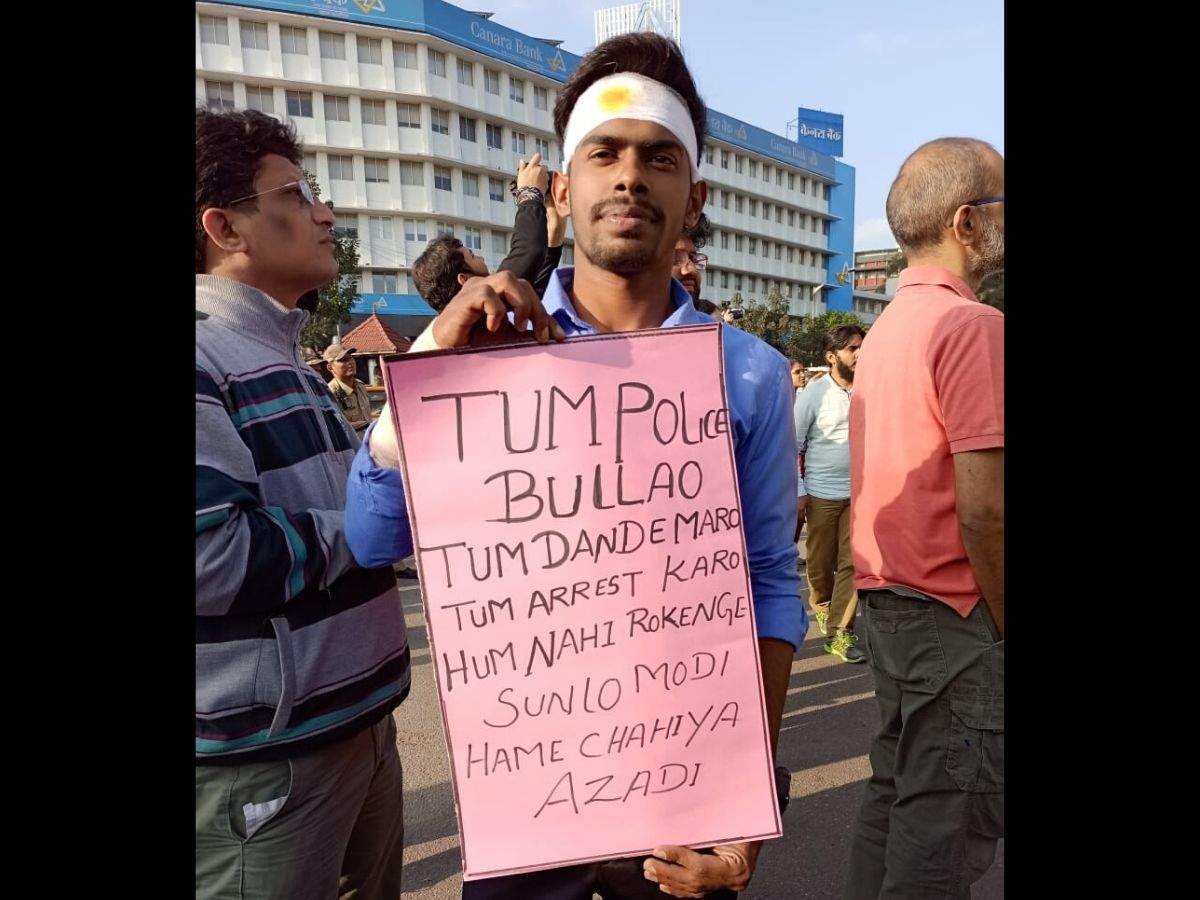 केनरा बैंक
Canara Bank
केनरा बैंक
Canara Bank
TUM POLICE
BULLAO
TUM DANDE MARO
TUM ARREST KARO
HUM NAHI ROKENGE
SUNLO MODI
HAME CHAHIYA
AZADI